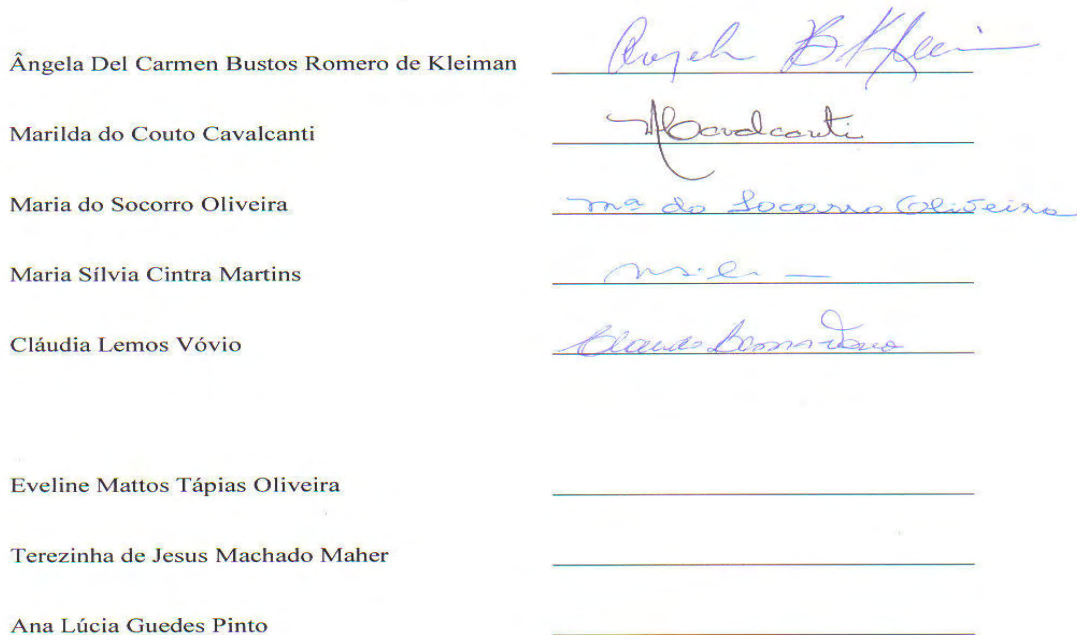 Ângela Del Carmen Bustos Romero de Kleiman Angela B. Klei
Marilda do Couto Cavalcanti MCavalcanti
Maria do Socorro Oliveira Mª do Socorro Oliveira
Maria Sílvia Cintra Martins
Cláudia Lemos Vóvio Claudia Lemos Vóvio
Eveline Mattos Tápias Oliveira
Terezinha de Jesus Machado Maher
Ana Lúcia Guedes Pinto